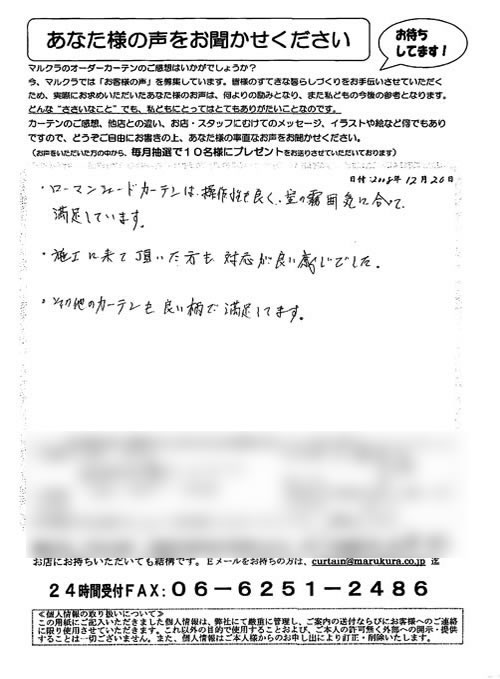 あなた様の声をお聞かせください
お待ち
してます！
マルクラのオーダーカーテンのご感想はいかがでしょうか？
今、マルクラでは「お客様の声」を募集しています。皆様のすてきな暮らしづくりをお手伝いさせていただく
ため、実際にお求めいただいたあなた様のお声は、何よりの励みとなり、また私どもの今後の参考となります。
どんな“ささいなこと”でも、私どもにとってはとてもありがたいことなのです。
カーテンのご感想、他店との違い、お店・スタッフにむけてのメッセージ、イラストや絵など何でもあり
ですので、どうぞご自由にお書きの上、あなた様の率直なお声をお聞かせください。
（お声をいただいた方の中から、毎月抽選で１０名様にプレゼントをお送りさせていただいております）
日付 2008年 12月 20日
・ローマンシェードカーテンは、操作性も良く、室の雰囲気に合って、
満足しています。
・施工に来て頂いた方も対応が良い感じでした。
・その他のカーテンも良い柄で満足してます。
お店にお持ちいただいても結構です。Ｅメールをお持ちの方は、curtain@marukura.co.jp 迄
２４時間受付FAX：０６－６２５１－２４８６
≪個人情報の取り扱いについて≫
この用紙にご記入いただきました個人情報は、弊社にて厳重に管理し、ご案内の送付ならびにお客様へのご連絡
に限り使用させていただきます。これ以外の目的で使用することおよび、ご本人の許可無く外部への開示・提供
することは一切ございません。また、個人情報はご本人様からのお申し出により訂正・削除いたします。